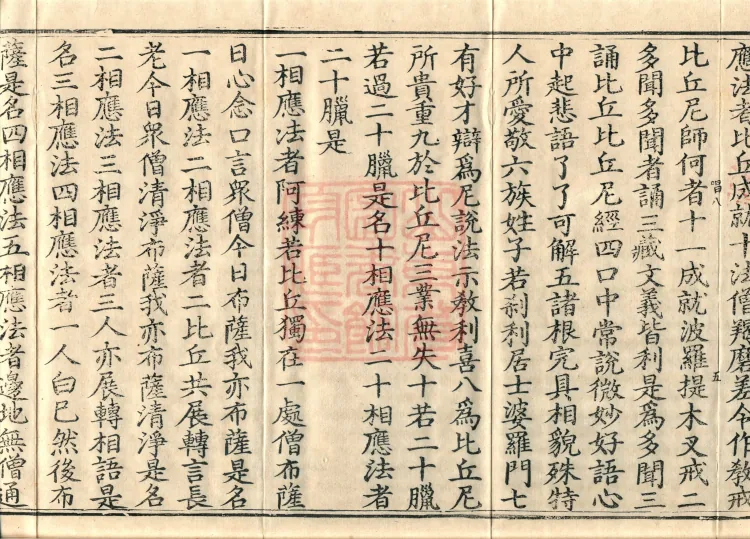 應法者比丘成就十法僧羯磨差令作教戒
唱八
五
比丘尼師何者十一成就波羅提木叉戒二
多聞多聞者誦三藏文義皆利是爲多聞三
誦比丘比丘尼經四口中常說微妙好語心
中起悲語了了可解五諸根完具相貌殊特
人所愛敬六族姓子若刹利居士婆羅門七
有好才辯爲尼說法示教利喜八爲比丘尼
所貴重九於比丘尼三業無失十若二十臘
若過二十臘是名十相應法二十相應法者
二十臘是
一相應法者阿練若比丘獨在一處僧布薩
日心念口言衆僧今日布薩我亦布薩是名
一相應法二相應法者二比丘共展轉言長
老今日衆僧清淨布薩我亦布薩清淨是名
二相應法三相應法者三人亦展轉相語是
名三相應法四相應法者一人白已然後布
薩是名四相應法五相應法者邊地無僧通